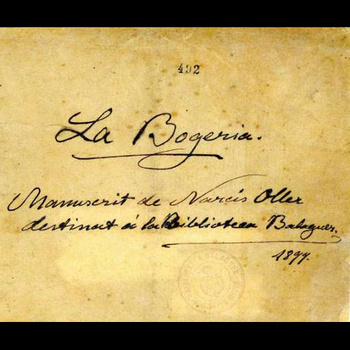 492
La Bogeria.
Manuscrit de Narcís Oller
destinat á la Biblioteca Balaguer.
1899.